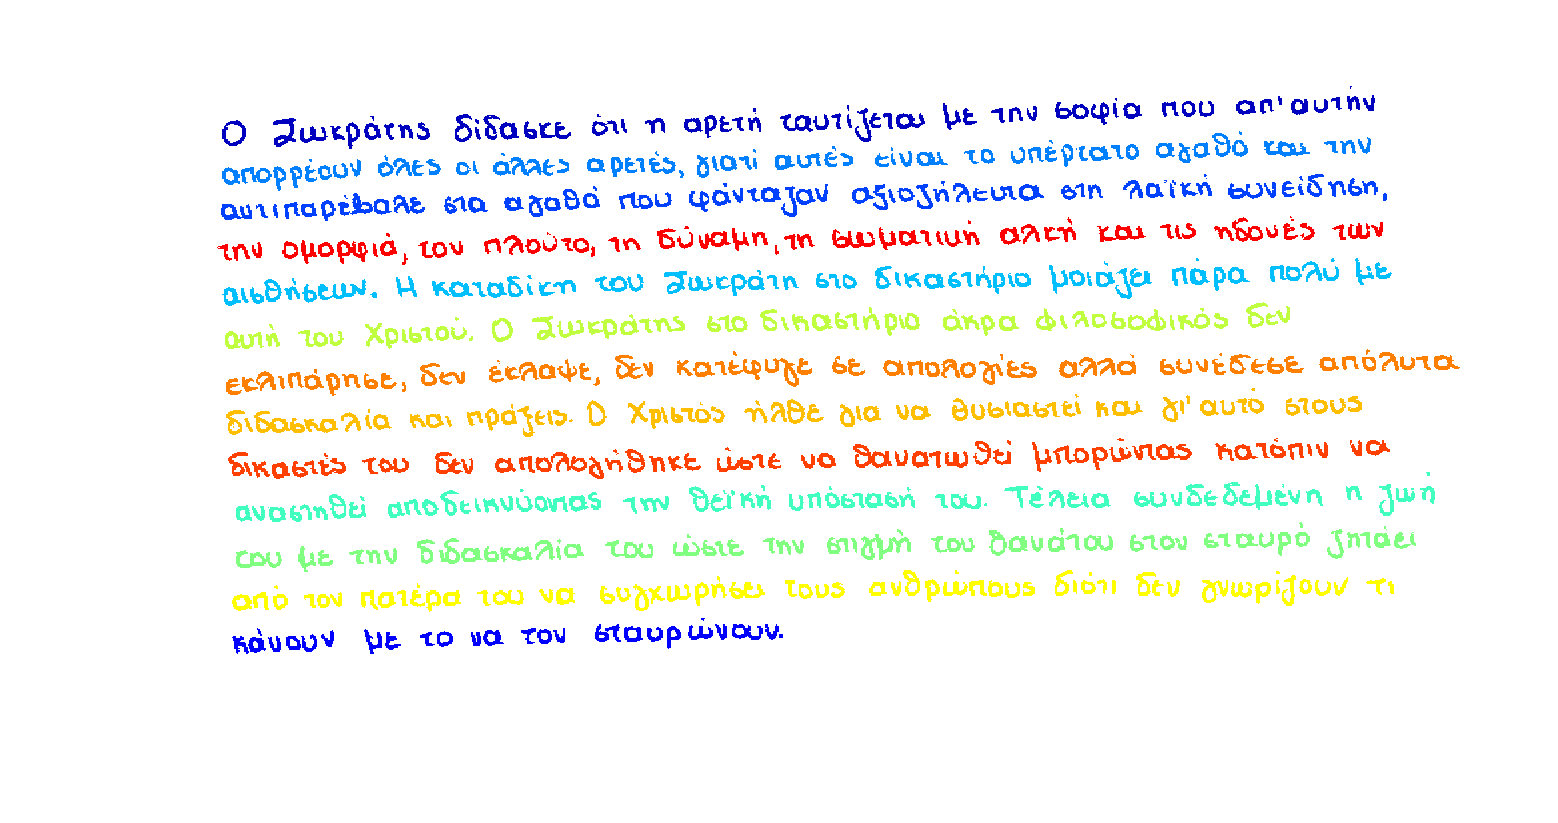 Ο Σωκράτης δίδασκε ότι η αρετή ταυτίζεται με την σοφία που απ'αυτήν
απορρέουν όλες οι άλλες αρετές, γιατί αυτές είναι το υπέρτατο αγαθό και την
αντιπαρέβαλε στα αγαθά που φάνταζαν αξιοζήλευτα στη λαϊκή συνείδηση,
την ομορφιά, τον πλούτο, τη δύναμη, τη σωματική αλκή και τις ηδονές των
αισθήσεων. Η καταδίκη του Σωκράτη στο δικαστήριο μοιάζει πάρα πολύ με
αυτή του Χριστού. Ο Σωκράτης στο δικαστήριο άκρα φιλοσοφικός δεν
εκλιπάρησε, δεν έκλαψε, δεν κατέφυγε σε απολογίες αλλά συνέδεσε απόλυτα
διδασκαλία και πράξεις. Ο Χριστός ήλθε για να θυσιαστεί και γι'αυτό στους
δικαστές του δεν απολογήθηκε ώστε να θανατωθεί μπορώντας κατόπιν να
αναστηθεί αποδεικνύοντας την θεϊκή υπόστασή του. Τέλεια συνδεδεμένη η ζωή
του με την διδασκαλία του ώστε την στιγμή του θανάτου στον σταυρό ζητάει
από τον πατέρα του να συγχωρήσει τους ανθρώπους διότι δεν γνωρίζουν τι
κάνουν με το να τον σταυρώνουν.